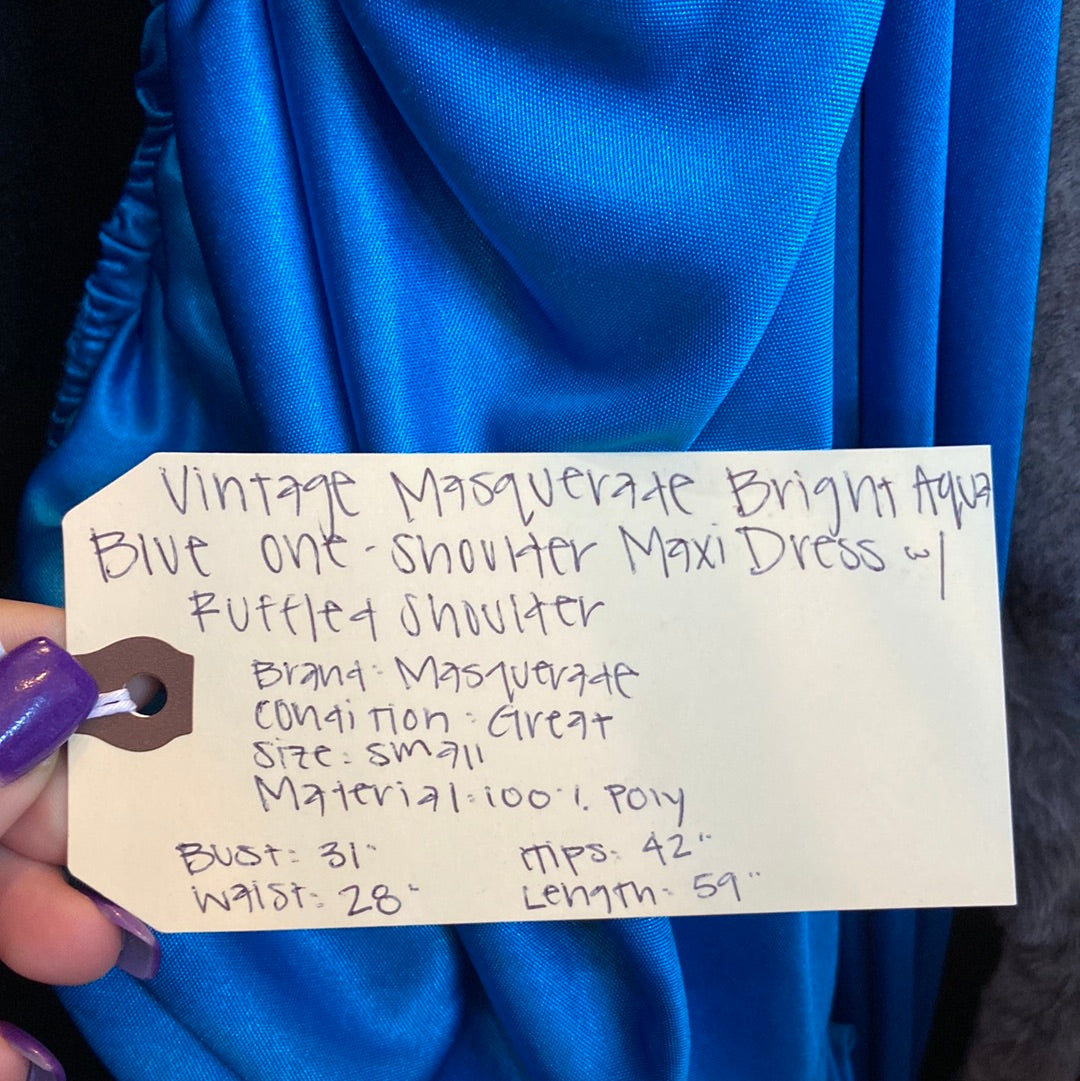 Vintage Masquerade Bright Aqua
Blue one-shoulder Maxi Dress w/
Ruffled shoulder
Brand: Masquerade
Condition: Great
Size: small
Material: 100% Poly
Bust: 31" Hips: 42"
Waist: 28" Length: 59"